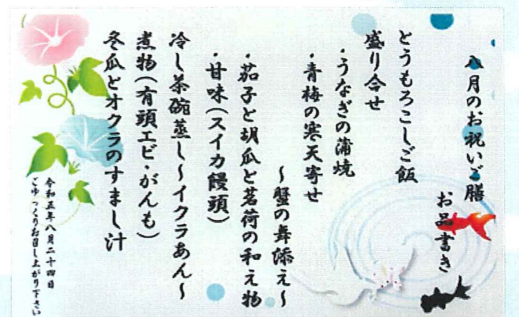 八月のお祝いご膳
お品書き
とうもろこしご飯
盛り合せ
・うなぎの蒲焼
・青梅の寒天寄せ
～蟹の舞添え～
・茄子と胡瓜と茗荷の和え物
・甘味(スイカ饅頭)
冷し茶碗蒸し～イクラあん～
煮物(有頭エビ・がんも)
冬瓜とオクラのすまし汁
令和五年八月二十四日
ごゆっくりお召し上がり下さい